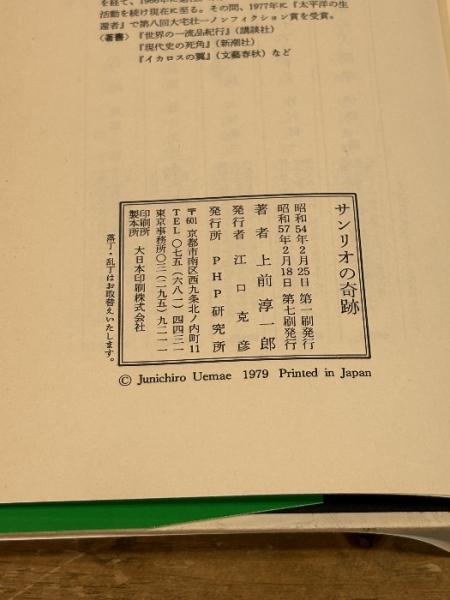 を経て、1966年に
活動を続け現在に至る。その間、1977年に『太平洋の生
還者』で第八回大宅壮一ノンフィクション賞を受賞。
〈著書〉『世界の一流品紀行』(講談社)
『現代史の死角』(新潮社)
『イカロスの翼』(文藝春秋)など
サンリオの奇跡
昭和54年2月25日 第一刷発行
昭和57年2月18日 第七刷発行
著者 上前淳一郎
発行者 江口克彦
発行所 PHP研究所
〒601 京都市南区西九条北ノ内町11
TEL〇七五(六八一)四四三一
東京事務所〇三(二九五)九二一一
印刷所
製本所
大日本印刷株式会社
落丁・乱丁はお取替えいたします。
© Junichiro Uemae 1979 Printed in Japan